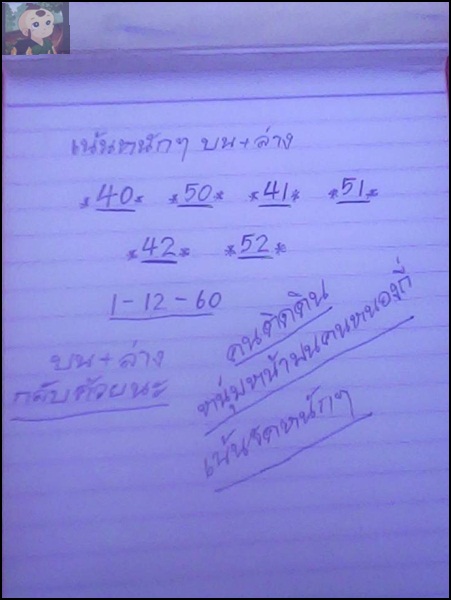 เน้นหนักๆ บน+ล่าง
*40* *50* *41* *51*
*42* *52*
1-12-60
บน+ล่าง
กลับด้วยนะ
คนติดดิน
หนุ่มหน้ามนคนหนองกี่
เน้นจัดหนักๆ